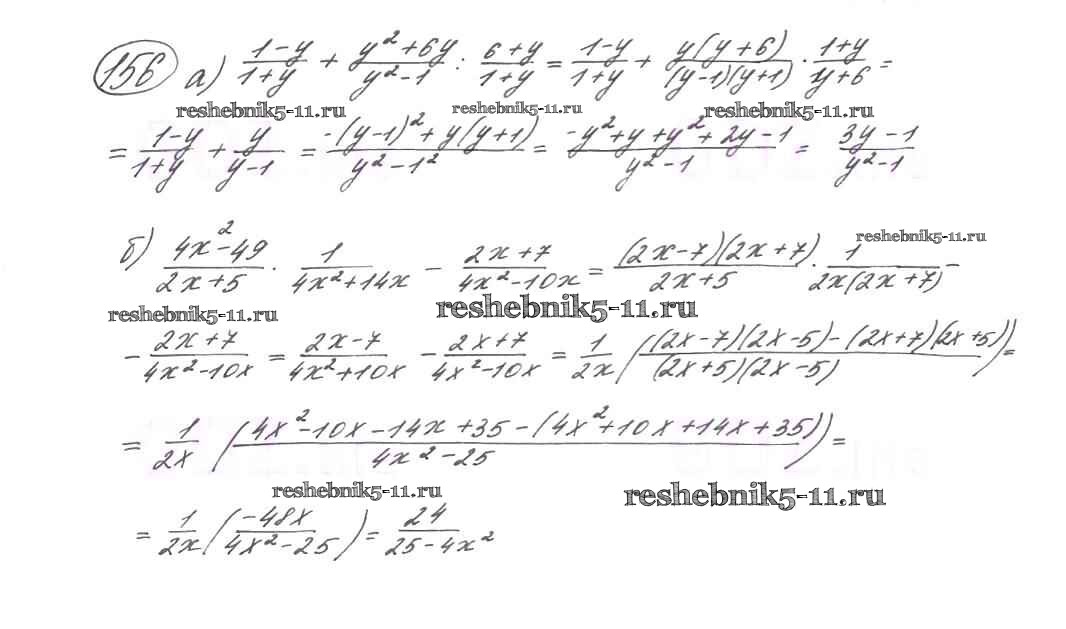 156 а) (1-y)/(1+y) + (y²+6y)/(y²-1) : (6+y)/(1+y) = (1-y)/(1+y) + y(y+6)/((y-1)(y+1)) · (1+y)/(y+6) =
reshebnik5-11.ru reshebnik5-11.ru reshebnik5-11.ru
= (1-y)/(1+y) + y/(y-1) = (-(y-1)²+y(y+1))/(y²-1²) = (-y²+y+y²+2y-1)/(y²-1) = (3y-1)/(y²-1)
reshebnik5-11.ru
б) (4x²-49)/(2x+5) · 1/(4x²+14x) - (2x+7)/(4x²-10x) = (2x-7)(2x+7)/(2x+5) · 1/(2x(2x+7)) -
reshebnik5-11.ru reshebnik5-11.ru
- (2x+7)/(4x²-10x) = (2x-7)/(4x²+10x) - (2x+7)/(4x²-10x) = 1/(2x) (((2x-7)(2x-5)-(2x+7)(2x+5))/((2x+5)(2x-5))) =
= 1/(2x) ((4x²-10x-14x+35-(4x²+10x+14x+35))/(4x²-25)) =
reshebnik5-11.ru reshebnik5-11.ru
= 1/(2x) (-48x/(4x²-25)) = 24/(25-4x²)